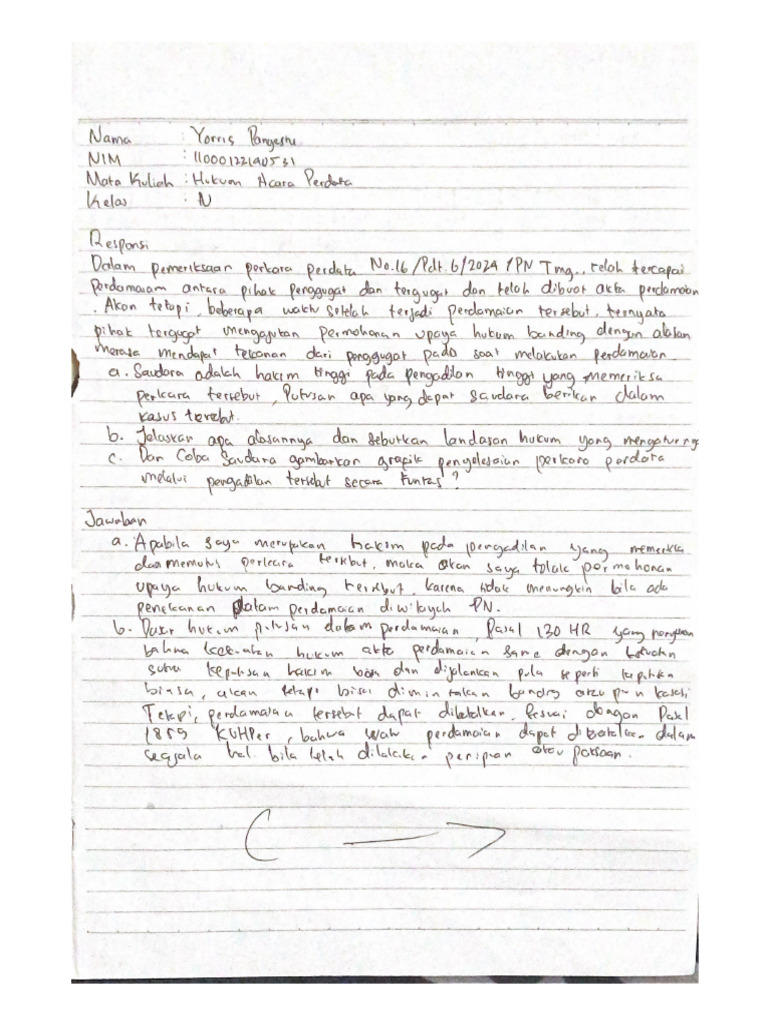 Nama : Yorris Pangestu
NIM : 11000122140531
Mata Kuliah : Hukum Acara Perdata
Kelas : N
Responsi
Dalam pemeriksaan perkara perdata No.16/Pdt.G/2024/PN Tmg., telah tercapai
perdamaian antara pihak penggugat dan tergugat dan telah dibuat akta perdamaian
. Akan tetapi, beberapa waktu setelah terjadi perdamaian tersebut, ternyata
pihak tergugat mengajukan permohonan upaya hukum banding dengan alasan
merasa mendapat tekanan dari penggugat pada saat melakukan perdamaian.
a. Saudara adalah hakim tinggi pada pengadilan tinggi yang memeriksa
perkara tersebut, Putusan apa yang dapat saudara berikan dalam
kasus tersebut.
b. Jelaskan apa alasannya dan sebutkan landasan hukum yang mengaturnya
c. Dan Coba Saudara gambarkan grafik penyelesaian perkara perdata
melalui pengadilan tersebut secara tuntas?
Jawaban
a. Apabila saya merupakan hakim pada pengadilan yang memeriksa
dan memutus perkara tersebut, maka akan saya tolak permohonan
upaya hukum banding tersebut, karena tidak mungkin bila ada
penekanan dalam perdamaian diwilayah PN.
b. Dasar hukum putusan dalam perdamaian, Pasal 130 HR yang
bahwa kekuatan hukum akta perdamaian sama dengan
suatu keputusan hakim dan dijalankan pula seperti keputusan
biasa, akan tetapi bisa dimintakan banding ataupun kasasi
Tetapi, perdamaian tersebut dapat dibatalkan. Sesuai dengan Pasal
1859 KUHPer, bahwa perdamaian dapat dibatalkan dalam
segala hal bila telah dilakukan penipuan atau paksaan.